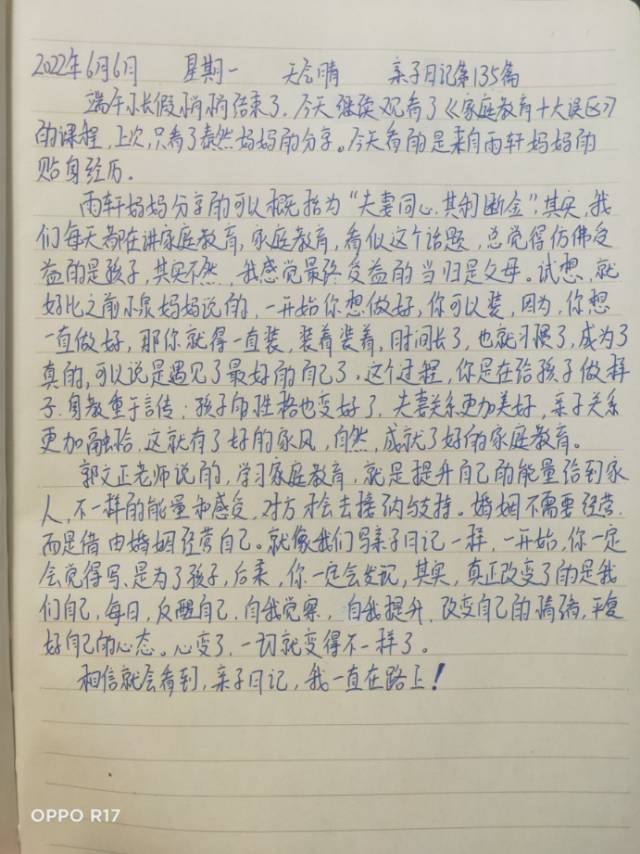 2022年6月6日 星期一 天气晴 亲子日记第135篇
端午小长假悄悄结束了。今天继续观看了《家庭教育十大误区》
的课程,上次,只看了泰然妈妈的分享。今天看的是来自雨轩妈妈的
贴身经历。
雨轩妈妈分享的可以概括为“夫妻同心,其利断金”,其实,我
们每天都在讲家庭教育,家庭教育,看似这个话题,总觉得仿佛受
益的是孩子,其实不然,我感觉最终受益的当归是父母。试想,就
好比之前小泉妈妈说的,一开始你想做好,你可以装,因为,你想
一直做好,那你就得一直装,装着装着,时间长了,也就习惯了,成为了
真的,可以说是遇见了最好的自己了。这个过程,你是在给孩子做样
子,身教重于言传;孩子的性格也变好了,夫妻关系更加美好,亲子关系
更加融洽,这就有了好的家风,自然,成就了好的家庭教育。
郭文正老师说的,学习家庭教育,就是提升自己的能量给到家
人,不一样的能量和感受,对方才会去接纳与支持。婚姻不需要经营,
而是借由婚姻经营自己。就像我们写亲子日记一样,一开始,你一定
会觉得写,是为了孩子,后来,你一定会发现,其实,真正改变了的是我
们自己,每日,反醒自己,自我觉察,自我提升,改变自己的情绪,平复
好自己的心态。心变了,一切就变得不一样了。
相信就会看到,亲子日记,我一直在路上!
OPPO R17